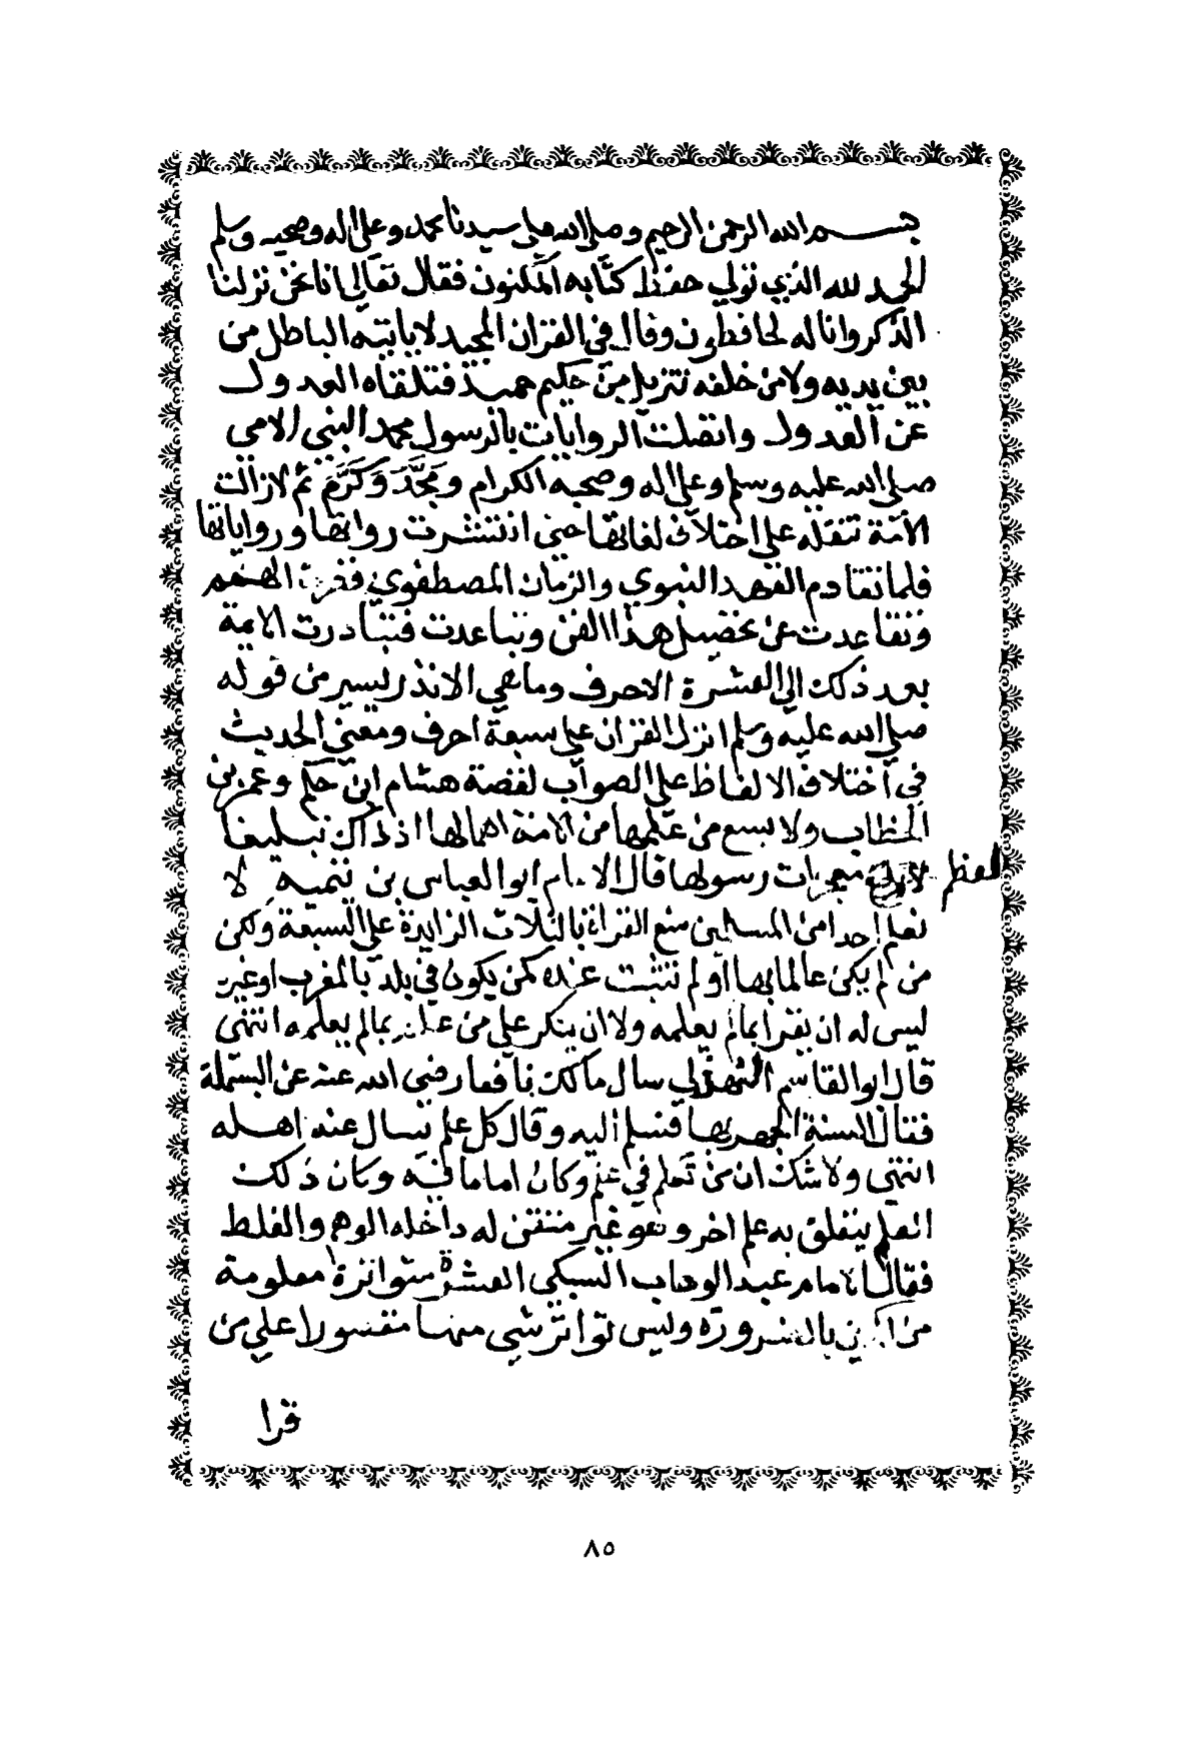 بسم الله الرحمن الرحيم وصلى الله على سيدنا محمد وعلى اله وصحبه وسلم
الحمد لله الذي تولي حفظ كتابه المكنون فقال تعالى انا نحن نزلنا
الذكر وانا له لحافظون وقال في القران المجيد لا ياتيه الباطل من
بين يديه ولا من خلفه تنزيل من حكيم حميد فتلقاه العدول
عن العدول واتصلت الروايات بالرسول محمد النبي الامي
صلى الله عليه وسلم وعلى اله وصحبه الكرام ومَجَّدَ وَكَرَّمَ ثم لازالت
الأمة تنقله على اختلاف لغاتها حتى انتشرت رواتها ورواياتها
فلما تقادم العهد النبوي والزمان المصطفوي فترت الهمم
وتقاعدت عن تحصيل هذا الفن وتباعدت فتبادرت الائمة
بعد ذلك الي العشرة الاحرف وما هي الا نذر يسير من قوله
صلى الله عليه وسلم انزل القران على سبعة احرف ومعني الحديث
في اختلاف الالفاظ على الصواب لقصة هشام ابن حكم وعمر بن
الخطاب ولا يسع من علمها من الامة اهمالها اذ ذاك تبليغا
لاعظم معجزات رسولها قال الامام ابو العباس بن تيمية لا
نعلم احدا من المسلمين منع القراءة بالثلاث الزايدة على السبعة ولكن
من لم يكن عالما بها او لم تثبت عنده كمن يكون في بلد بالمغرب او غيره
ليس له ان يقرا بما لم يعلمه ولا ان ينكر على من علم بما لم يعلمه انتهى
قال ابو القاسم الهذلي سال مالك نافعا رضى الله عنه عن البسملة
فقال السنة الجهر بها فسلم اليه وقال كل علم يسال عنه اهله
انتهى ولا شك ان من تعلم في علم وكان اماما فيه وكان ذلك
العلم يتعلق به علم اخر وهو غير متقن له داخله الوهم والغلط
فقال الامام عبد الوهاب السبكي العشرة متواترة معلومة
من الدين بالضرورة وليس تواتر شي منها مقصورا على من
قرا
٨٥